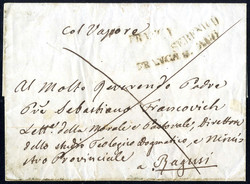 col Vapore
Al Molto Reverendo Padre
Pre Sebastiano Francovich
Lett.e della Morale e Pastorale, Direttore
dello studio Teologico Dogmatico, e Minis
tro Provinciale
a Ragusi